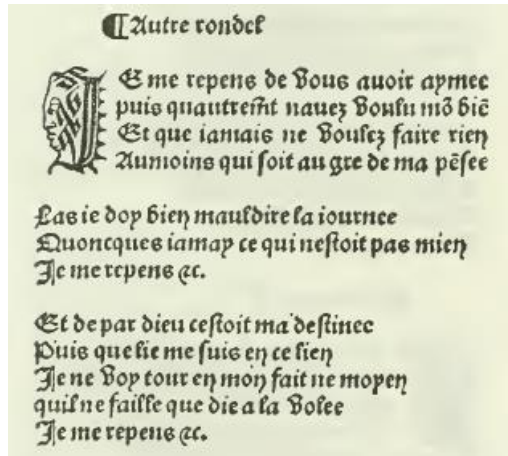 ¶Autre rondel
JE me repens de vous auoir aymee
puis quautremẽt nauez voulu mõ biẽ
Et que iamais ne voulez faire rien
Aumoins qui soit au gre de ma pẽsee
Las ie doy bien mauldire la iournee
Quoncques iamay ce qui nestoit pas mien
Je me repens ⁊c.
Et de par dieu cestoit ma destinee
Puis que lie me suis en ce lien
Je ne voy tour en mon fait ne moyen
quil ne faille que die a la volee
Je me repens ⁊c.